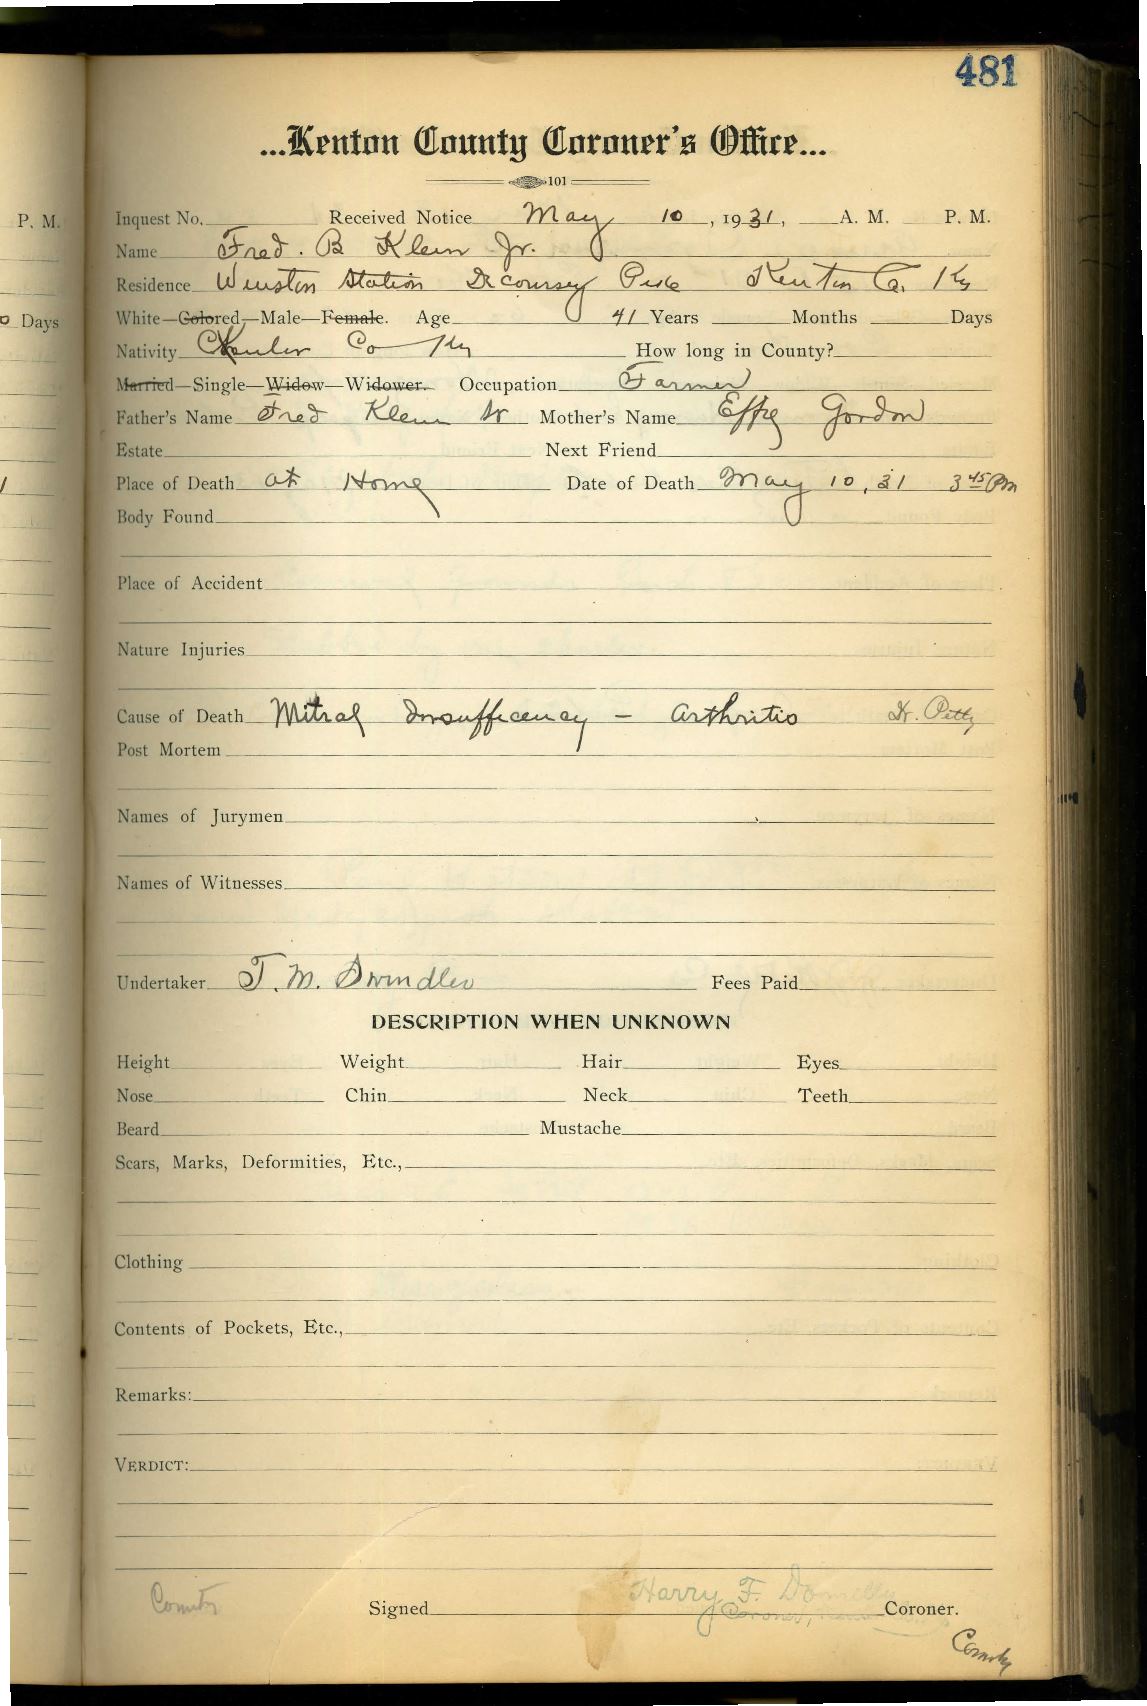 481
...Kenton County Coroner's Office...
101
P. M.
Inquest No. Received Notice May 10, 1931, A. M. P. M.
Name Fred. B Klein Jr.
Residence Winston Station Decoursey Pike Kenton Co. Ky
o Days
White—Colored—Male—Female. Age 41 Years Months Days
Nativity Kenton Co Ky How long in County?
Married—Single—Widow—Widower. Occupation Farmer
Father's Name Fred Klein Sr Mother's Name Effie Gordon
Estate Next Friend
Place of Death at Home Date of Death May 10, 31 3 45 Pm
Body Found
Place of Accident
Nature Injuries
Cause of Death Mitral Insufficency - Arthritis Dr. Petty
Post Mortem
Names of Jurymen
Names of Witnesses
Undertaker T. M. Swindler Fees Paid
DESCRIPTION WHEN UNKNOWN
Height Weight Hair Eyes
Nose Chin Neck Teeth
Beard Mustache
Scars, Marks, Deformities, Etc.,
Clothing
Contents of Pockets, Etc.,
Remarks:
VERDICT:
Harry F. Donnelly
Signed Coroner, Coroner.